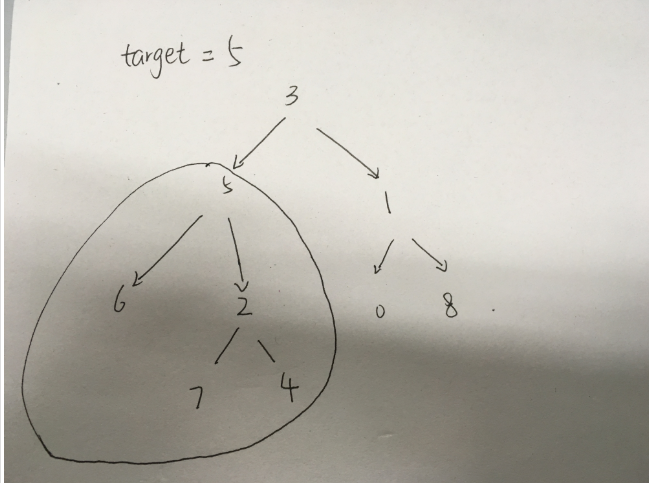 target = 5
3
5 1
6 2 0 8
7 4